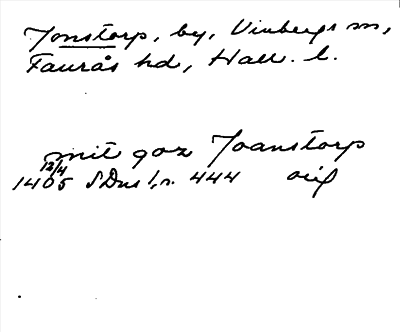 Jonstorp, by, Vinbergs sn,
Faurås hd, Hall. l.
mit goz Joanstorp
12/4
1405 SDns 1, n. 444 orig